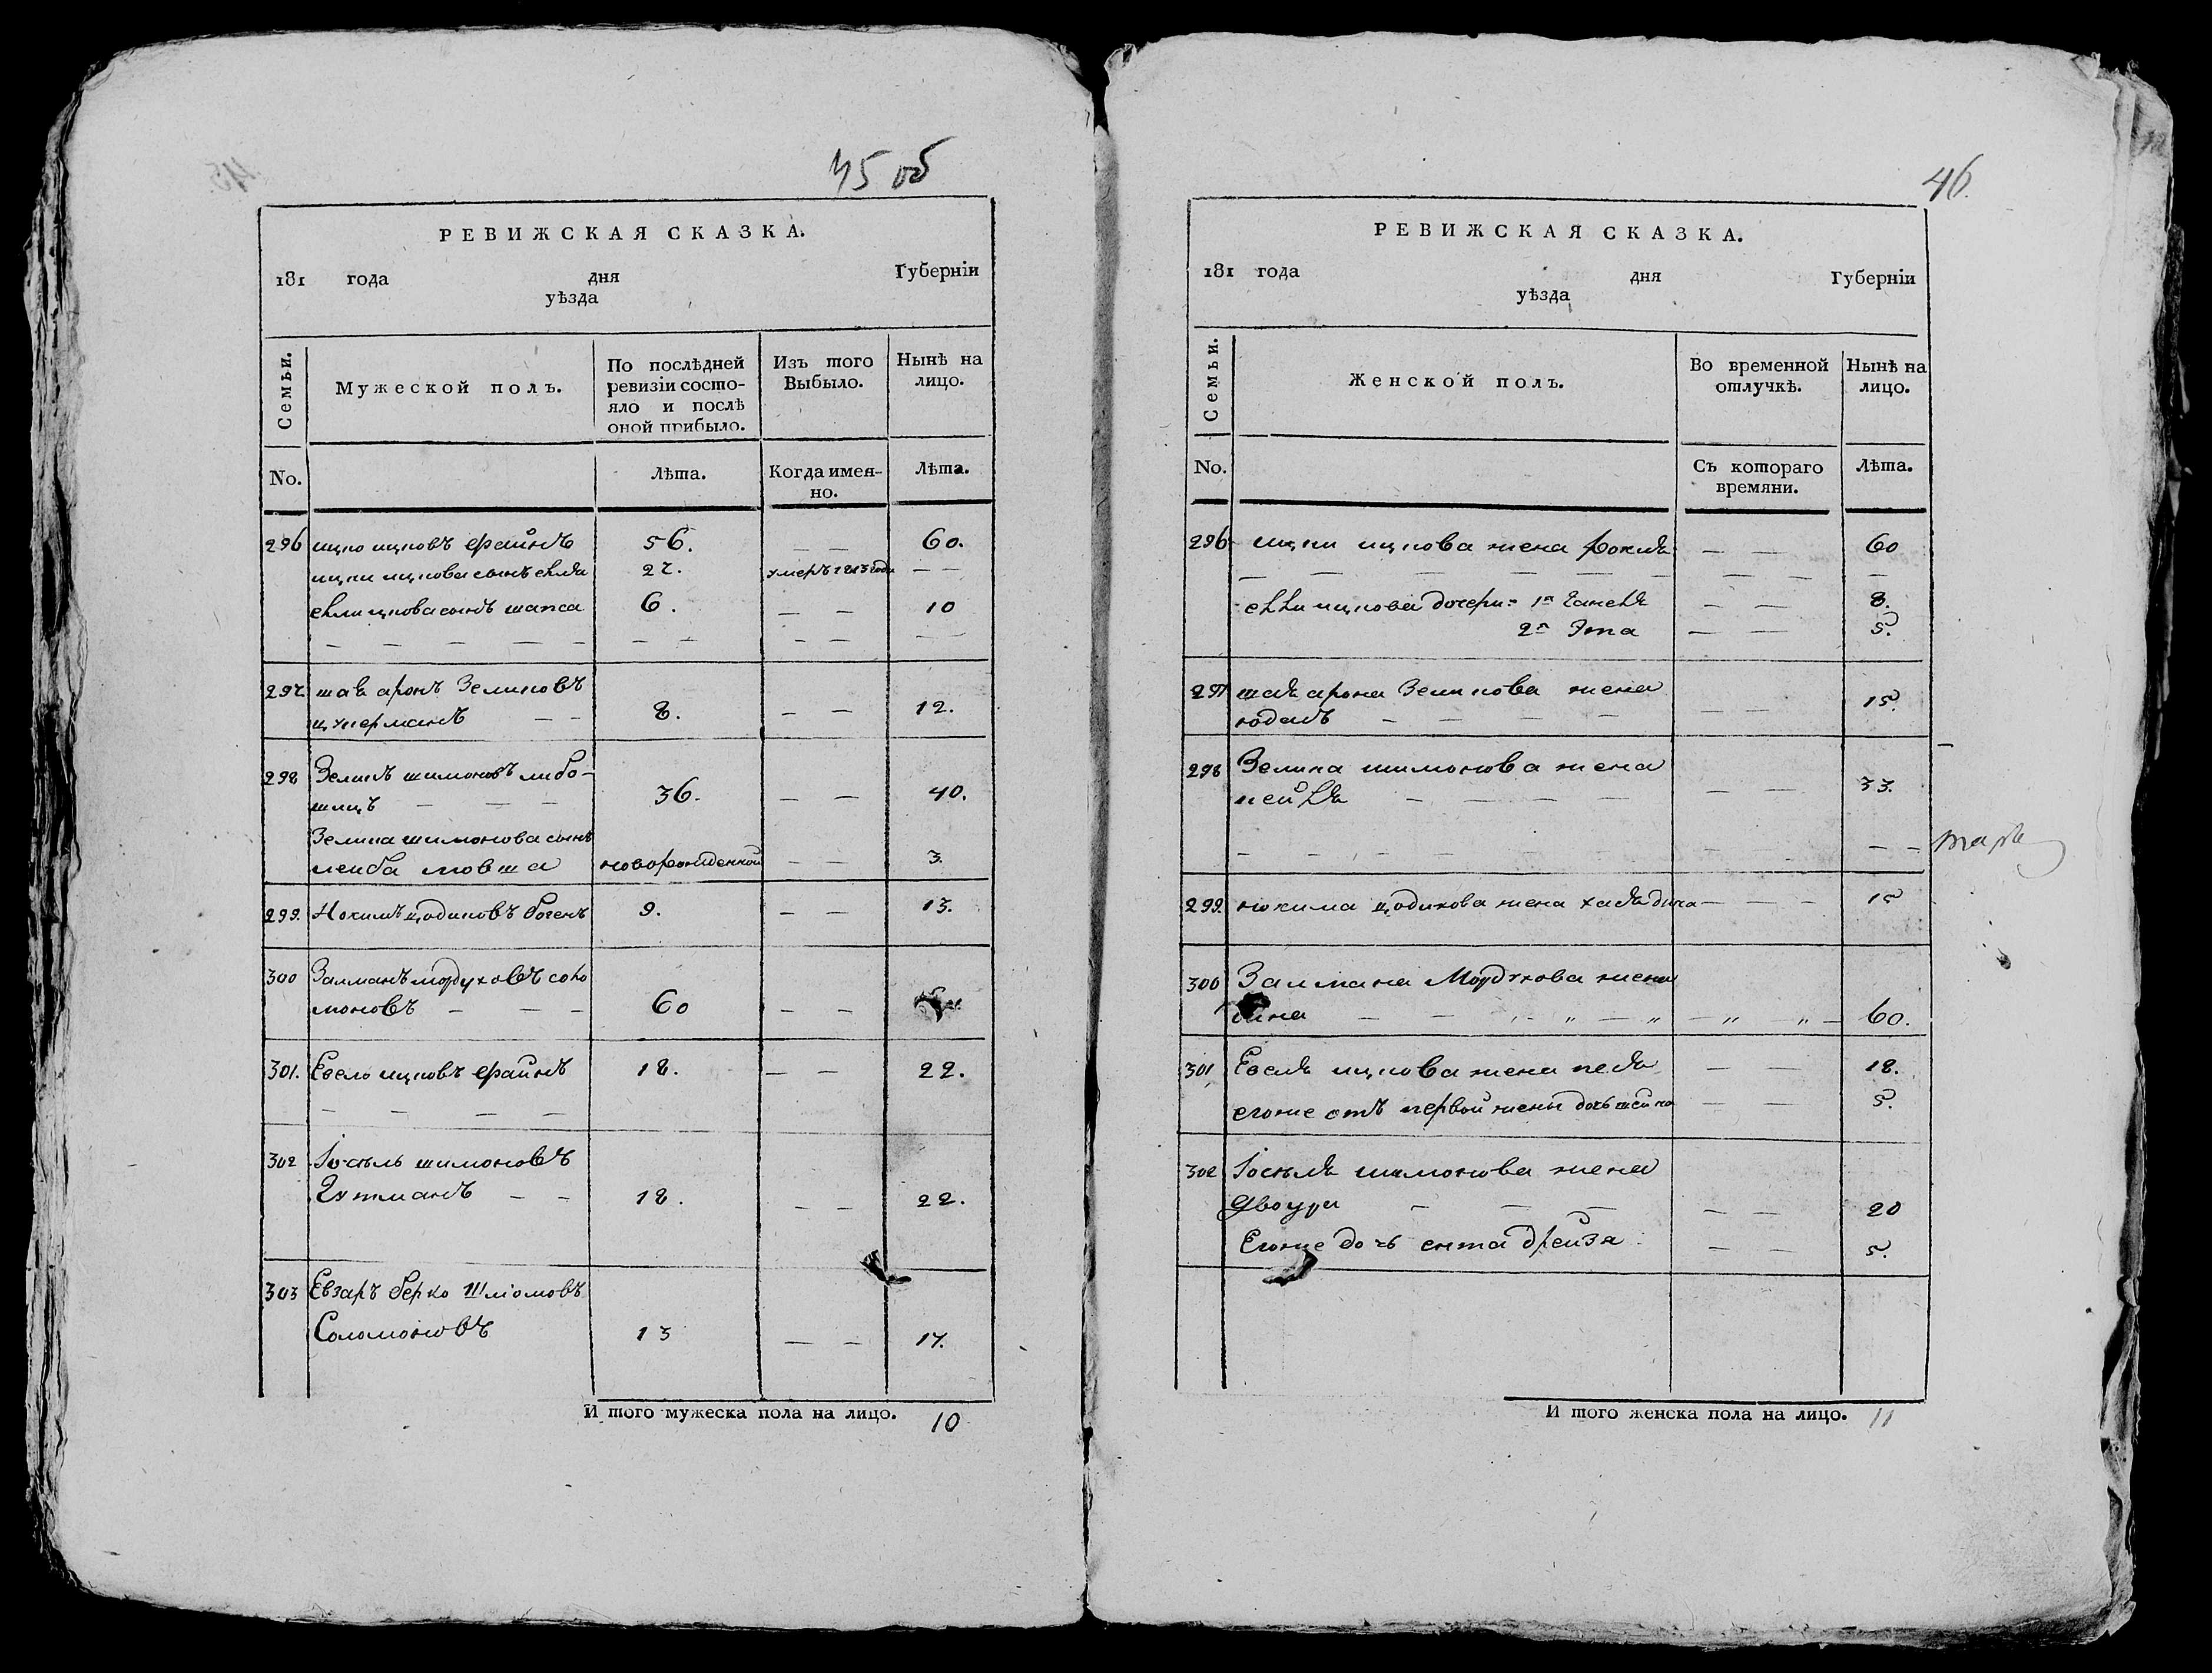 45 об
РЕВИЖСКАЯ СКАЗКА.
181 года дня Губерніи
уѣзда
Семьи.
Мужеской полъ.
По послѣдней ревизіи состо-
яло и послѣ оной прибыло.
Изъ того Выбыло.
Нынѣ на лицо.
No.
Лѣта.
Когда имен-
но.
Лѣта.
296 ицко ицковъ фаинъ 56. — — 60.
ицки ицкова сынъ 27. умеръ 1813 года — —
ицкова сынъ шапса 6. — — 10
297. аронъ Зеликовъ
цукерманъ — — 8. — — 12.
298 Зеликъ шимоновъ либо-
шицъ — — — 36. — — 40.
Зелика шимонова сынъ
лейба мовша новорожденной — — 3.
299. Нохимъ цодиковъ богенъ 9. — — 13.
300 Залманъ мордуховъ соло
моновъ — — — 60 — —
301. Евель ицковъ фаинъ 18. — — 22.
302 Іосель шимоновъ
Гутманъ — — 18. — — 22.
303 Евзаръ берко Шліомовъ
Соломоновъ 13 — — 17.
И того мужеска пола на лицо. 10
46.
РЕВИЖСКАЯ СКАЗКА.
181 года дня Губерніи
уѣзда
Семьи.
Женской полъ.
Во временной отлучкѣ.
Нынѣ на лицо.
No.
Съ котораго времяни.
Лѣта.
296 ицки ицкова жена — — 60
ицкова дочери: 1я — — 8.
2я Эта — — 5.
297 арона Зеликова жена
— — — — — — 15.
298 Зелика шимонова жена
— — — — — — 33.
299. нохима цодикова жена — — — 15
300 Залмана Мордухова жена
60.
301 Евеля ицкова жена песя — — 18.
егоже отъ первой жены дочь шейна — — 5.
302 Іоселя шимонова жена
Двойра — — — — — 20
Егоже дочь ента дрейзя — — 5.
И того женска пола на лицо. 11